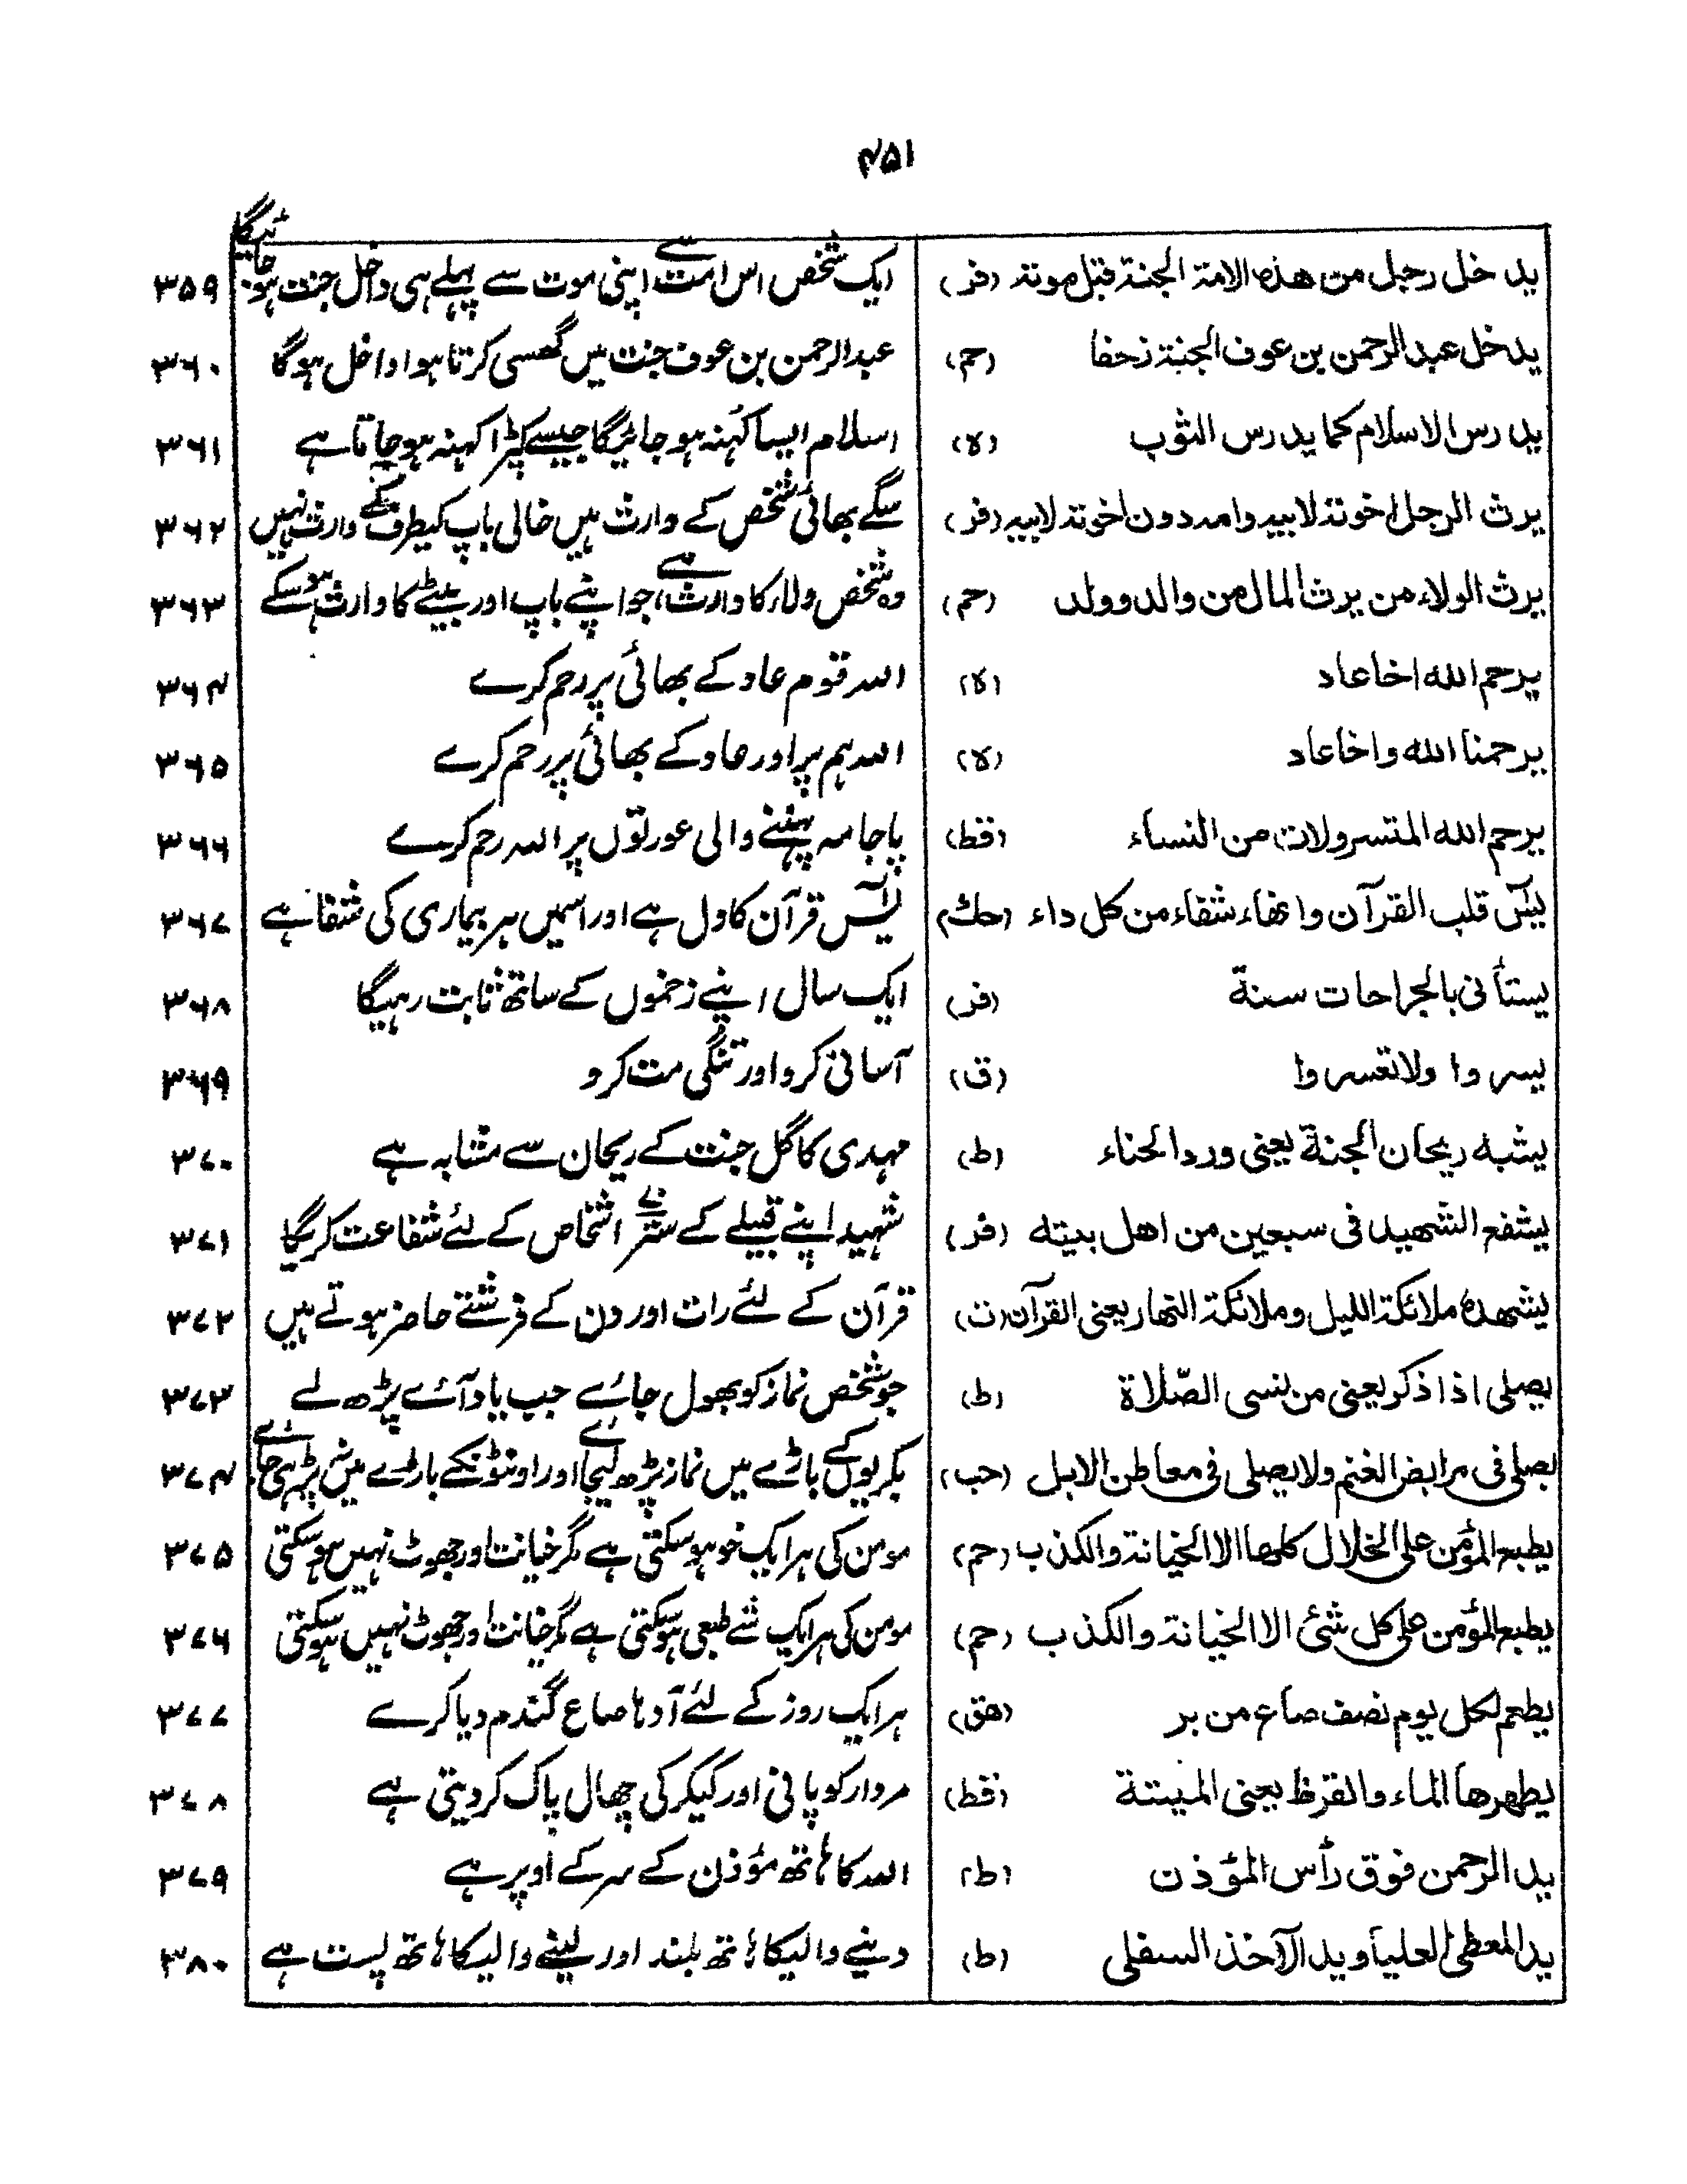 ۴۵۱
يدخل رجل من هذه الامة الجنة قبل موته (فر) ایک شخص اس امت سے اپنی موت سے پہلے ہی داخل جنت ہو جائیگا ۳۵۹
يدخل عبد الرحمن بن عوف الجنة زحفا (حم) عبدالرحمن بن عوف جنت میں گھسی کرتا ہوا داخل ہوگا ۳۶۰
يدرس الاسلام كما يدرس الثوب (ه) اسلام ایسا کہنہ ہو جائیگا جیسے کپڑا کہنہ ہو جاتا ہے ۳۶۱
يرث الرجل اخوته لابيه وامه دون اخوته لابيه (فر) سگے بھائی شخص کے وارث ہیں خالی باپ کیطرف کے وارث نہیں ۳۶۲
يرث الولاء من يرث المال من والد وولد (حم) وہ شخص ولاء کا وارث ہے جو اپنے باپ اور بیٹے کا وارث ہو سکے ۳۶۳
يرحم الله اخا عاد (ه) اللہ قوم عاد کے بھائی پر رحم کرے ۳۶۴
يرحمنا الله واخا عاد (ه) اللہ ہم پر اور عاد کے بھائی پر رحم کرے ۳۶۵
يرحم الله المتسرولات من النساء (قط) پاجامہ پہننے والی عورتوں پر اللہ رحم کرے ۳۶۶
يٰسٓ قلب القرآن وانها شفاء من كل داء (حك) یٰسٓ قرآن کا دل ہے اور اسمیں ہر بیماری کی شفا ہے ۳۶۷
يستأنى بالجراحات سنة (فر) ایک سال اپنے زخموں کے ساتھ ثابت رہیگا ۳۶۸
يسروا ولا تعسروا (ق) آسانی کرو اور تنگی مت کرو ۳۶۹
يشبه ريحان الجنة يعنى ورد الحناء (ط) مہدی کا گل جنت کے ریحان سے مشابہ ہے ۳۷۰
يشفع الشهيد فى سبعين من اهل بيته (فر) شہید اپنے قبیلے کے ستر اشخاص کے لئے شفاعت کریگا ۳۷۱
يشهده ملائكة الليل وملائكة النهار يعنى القرآن (ت) قرآن کے لئے رات اور دن کے فرشتے حاضر ہوتے ہیں ۳۷۲
يصلى اذا ذكر يعنى من نسى الصّلاة (ط) جو شخص نماز کو بھول جائے جب یاد آئے پڑھ لے ۳۷۳
يصلى فى مرابض الغنم ولا يصلى فى معاطن الابل (حب) بکریوں کے باڑے میں نماز پڑھ لیجائے اور اونٹونکے باڑے میں نہ پڑہی جائے ۳۷۴
يطبع المؤمن على الخلال كلها الا الخيانة والكذب (حم) مومن کی ہر ایک خو ہو سکتی ہے مگر خیانت اور جھوٹ نہیں ہو سکتی ۳۷۵
يطبع المؤمن على كل شئ الا الخيانة والكذب (حم) مومن کی ہر ایک شے طبعی ہو سکتی ہے مگر خیانت اور جھوٹ نہیں ہو سکتی ۳۷۶
يطعم لكل يوم نصف صاع من بر (هق) ہر ایک روز کے لئے آدہا صاع گندم دیا کرے ۳۷۷
يطهرها الماء والقرظ يعنى الميتة (قط) مردار کو پانی اور کیکر کی چھال پاک کر دیتی ہے ۳۷۸
يد الرحمن فوق رأس المؤذن (ط) اللہ کا ہاتھ مؤذن کے سر کے اوپر ہے ۳۷۹
يد المعطى العليا ويد الآخذ السفلى (ط) دینے والیکا ہاتھ بلند اور لینے والیکا ہاتھ پست ہے ۳۸۰